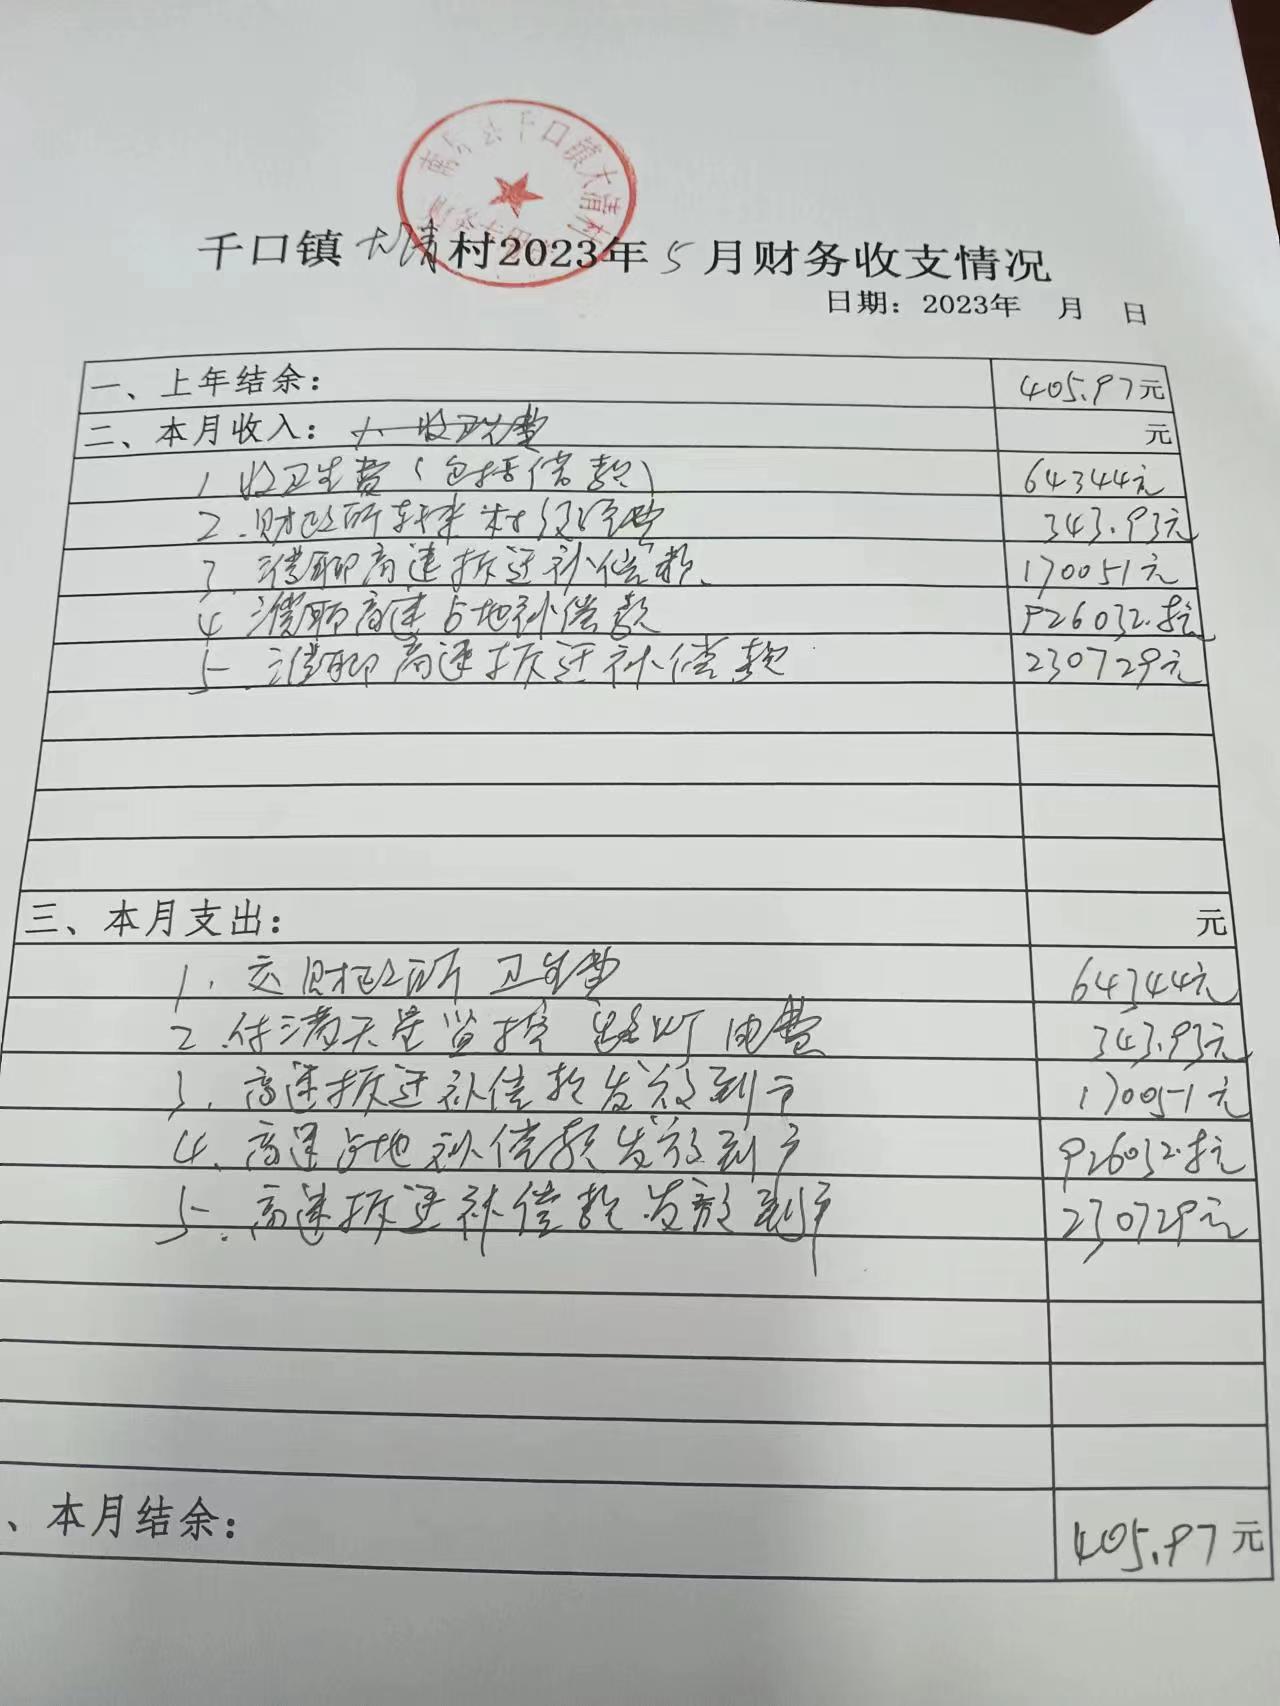 南乐县千口镇大清村
财务专用
千口镇大清村2023年5月财务收支情况
日期：2023年 月 日
一、上年结余： 405.97元
二、本月收入： 元
1 收卫生费（包括借款） 64344元
2.财政所转来村级经费 343.93元
3.濮聊高速拆迁补偿款 170051元
4 濮聊高速占地补偿款 926032.
5 濮聊高速拆迁补偿款 230729元
三、本月支出： 元
1.交财政所卫生费 64344元
2.付满天星监控 路灯电费 343.93元
3.高速拆迁补偿款发放到户 170051元
4.高速占地补偿款发放到户 926032.
5.高速拆迁补偿款发放到户 230729元
、本月结余： 405.97元